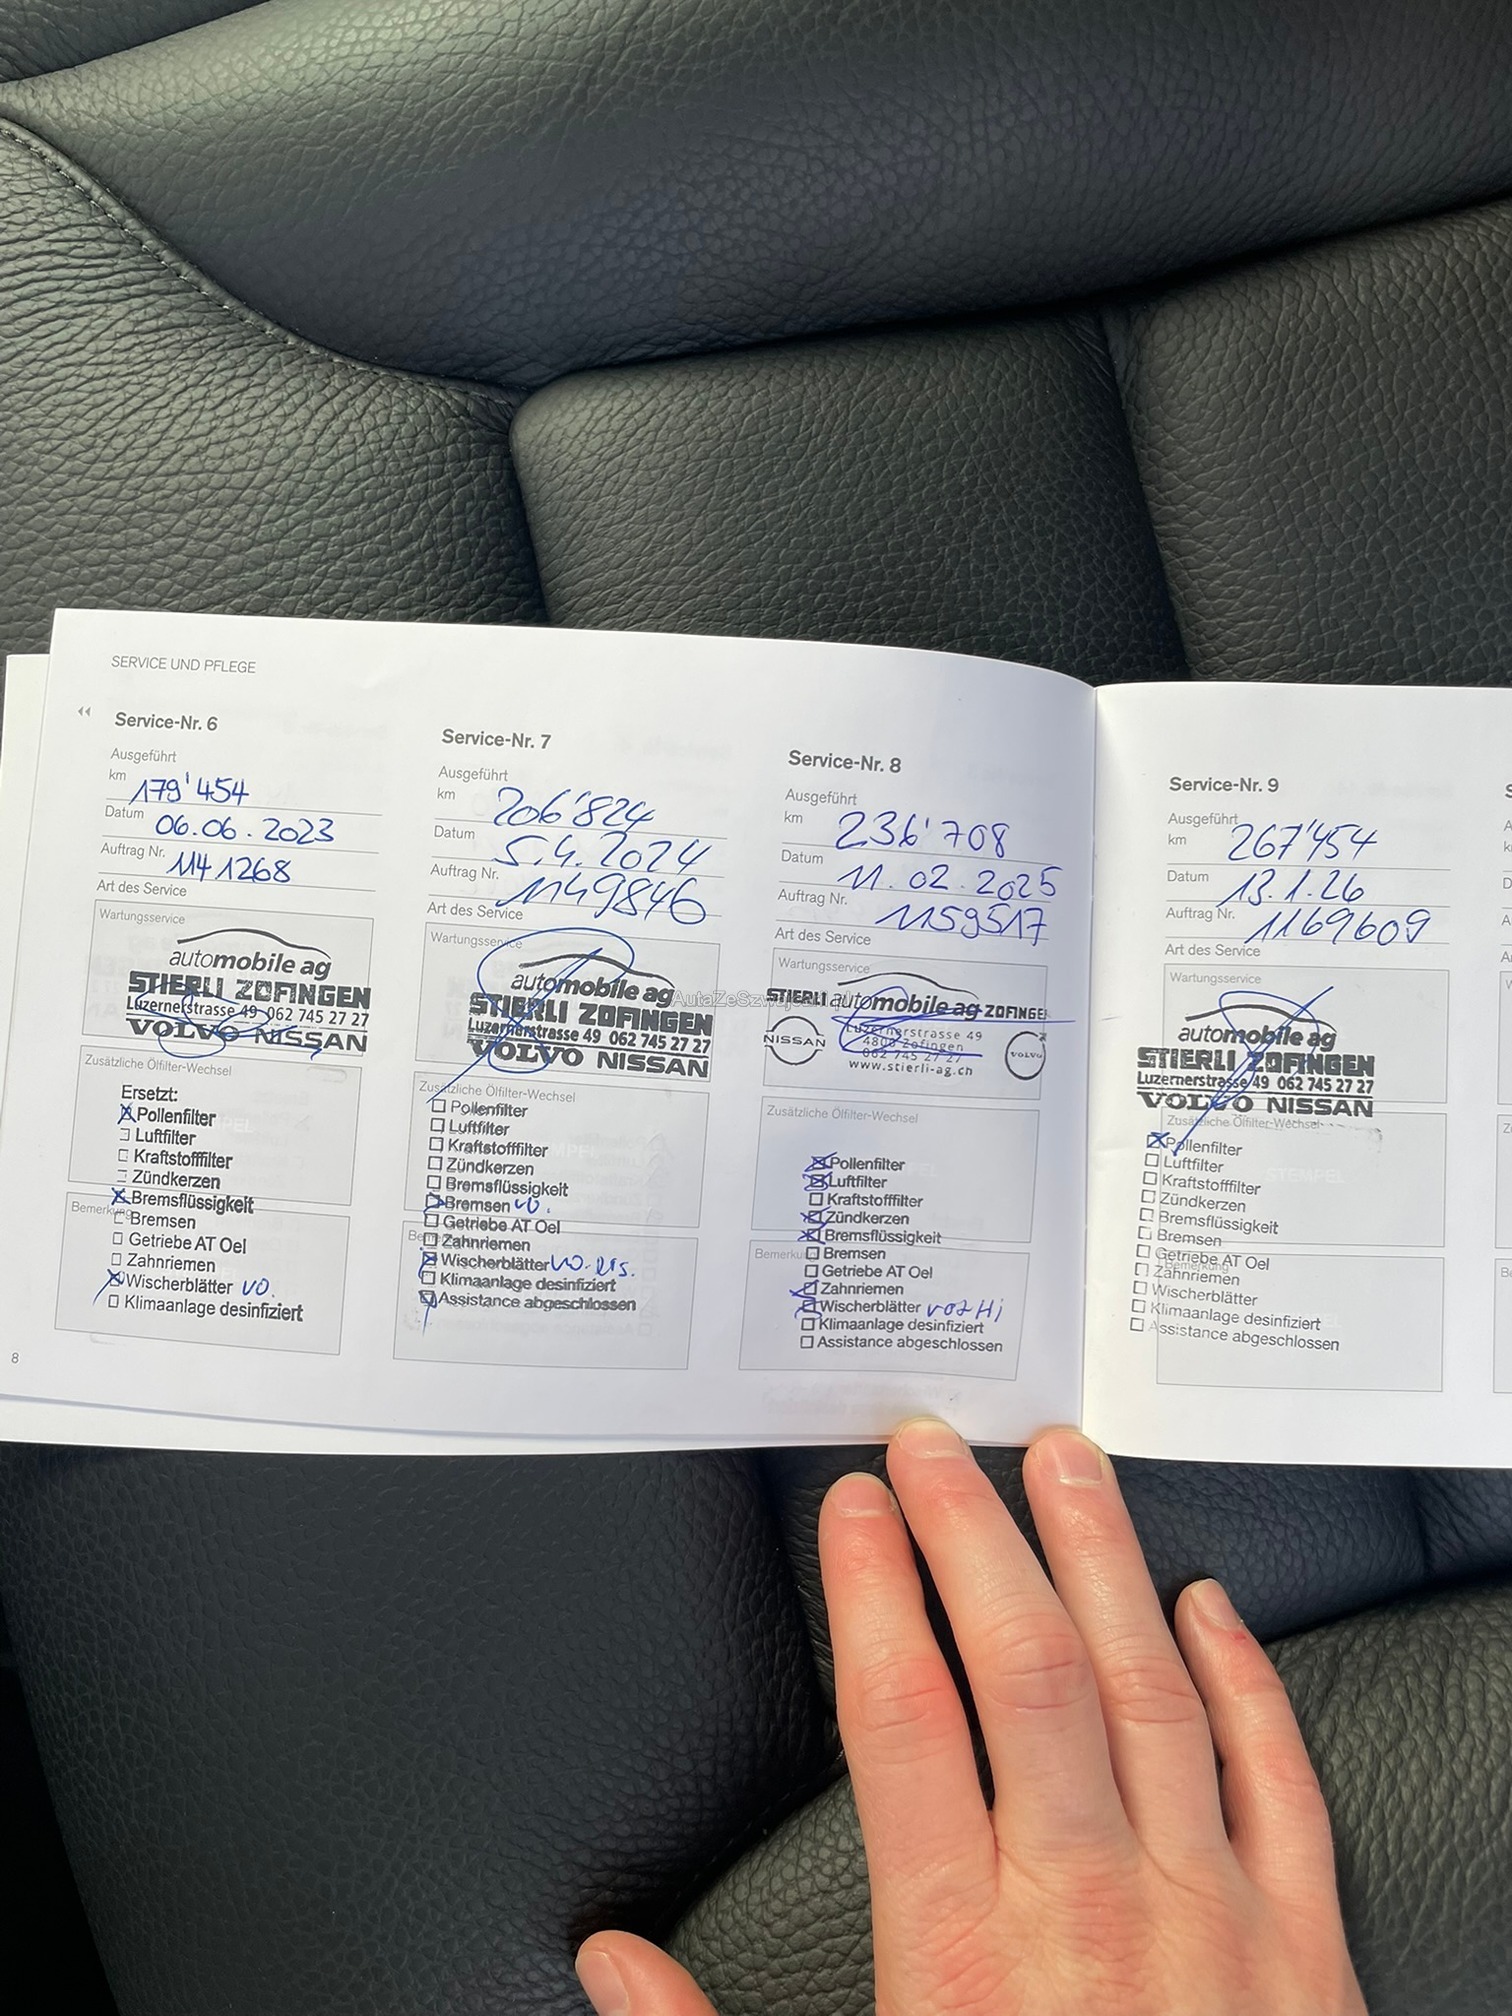 SERVICE UND PFLEGE
Service-Nr. 6
Ausgeführt
km 179'454
Datum 06.06.2023
Auftrag Nr. 1141268
Art des Service
Wartungsservice
automobile ag
STIERLI ZOFINGEN
Luzernerstrasse 49 062 745 27 27
VOLVO NISSAN
Zusätzliche Ölfilter-Wechsel
Ersetzt:
Pollenfilter
Luftfilter
Kraftstofffilter
Zündkerzen
Bremsflüssigkeit
Bemerkung
Bremsen
Getriebe AT Oel
Zahnriemen
Wischerblätter VO.
Klimaanlage desinfiziert
8
Service-Nr. 7
Ausgeführt
km 206'824
Datum 5.4.2024
Auftrag Nr. 1149846
Art des Service
Wartungsservice
automobile ag
STIERLI ZOFINGEN
Luzernerstrasse 49 062 745 27 27
VOLVO NISSAN
Zusätzliche Ölfilter-Wechsel
Pollenfilter
Luftfilter
Kraftstofffilter
Zündkerzen
Bremsflüssigkeit
Bremsen VO.
Getriebe AT Oel
Zahnriemen
Wischerblätter
Klimaanlage desinfiziert
Assistance abgeschlossen
Service-Nr. 8
Ausgeführt
km 236'708
Datum 11.02.2025
Auftrag Nr. 1159517
Art des Service
Wartungsservice
STIERLI automobile ag ZOFINGEN
NISSAN
Luzernerstrasse 49
4800 Zofingen
062 745 27 27
www.stierli-ag.ch
VOLVO
Zusätzliche Ölfilter-Wechsel
Pollenfilter
Luftfilter
Kraftstofffilter
Zündkerzen
Bremsflüssigkeit
Bremsen
Getriebe AT Oel
Zahnriemen
Wischerblätter
Klimaanlage desinfiziert
Assistance abgeschlossen
Service-Nr. 9
Ausgeführt
km 267'454
Datum 13.1.26
Auftrag Nr. 1169609
Art des Service
Wartungsservice
automobile ag
STIERLI ZOFINGEN
Luzernerstrasse 49 062 745 27 27
VOLVO NISSAN
Zusätzliche Ölfilter-Wechsel
Pollenfilter
Luftfilter
Kraftstofffilter
Zündkerzen
Bremsflüssigkeit
Bremsen
Getriebe AT Oel
Bemerkung
Zahnriemen
Wischerblätter
Klimaanlage desinfiziert
Assistance abgeschlossen